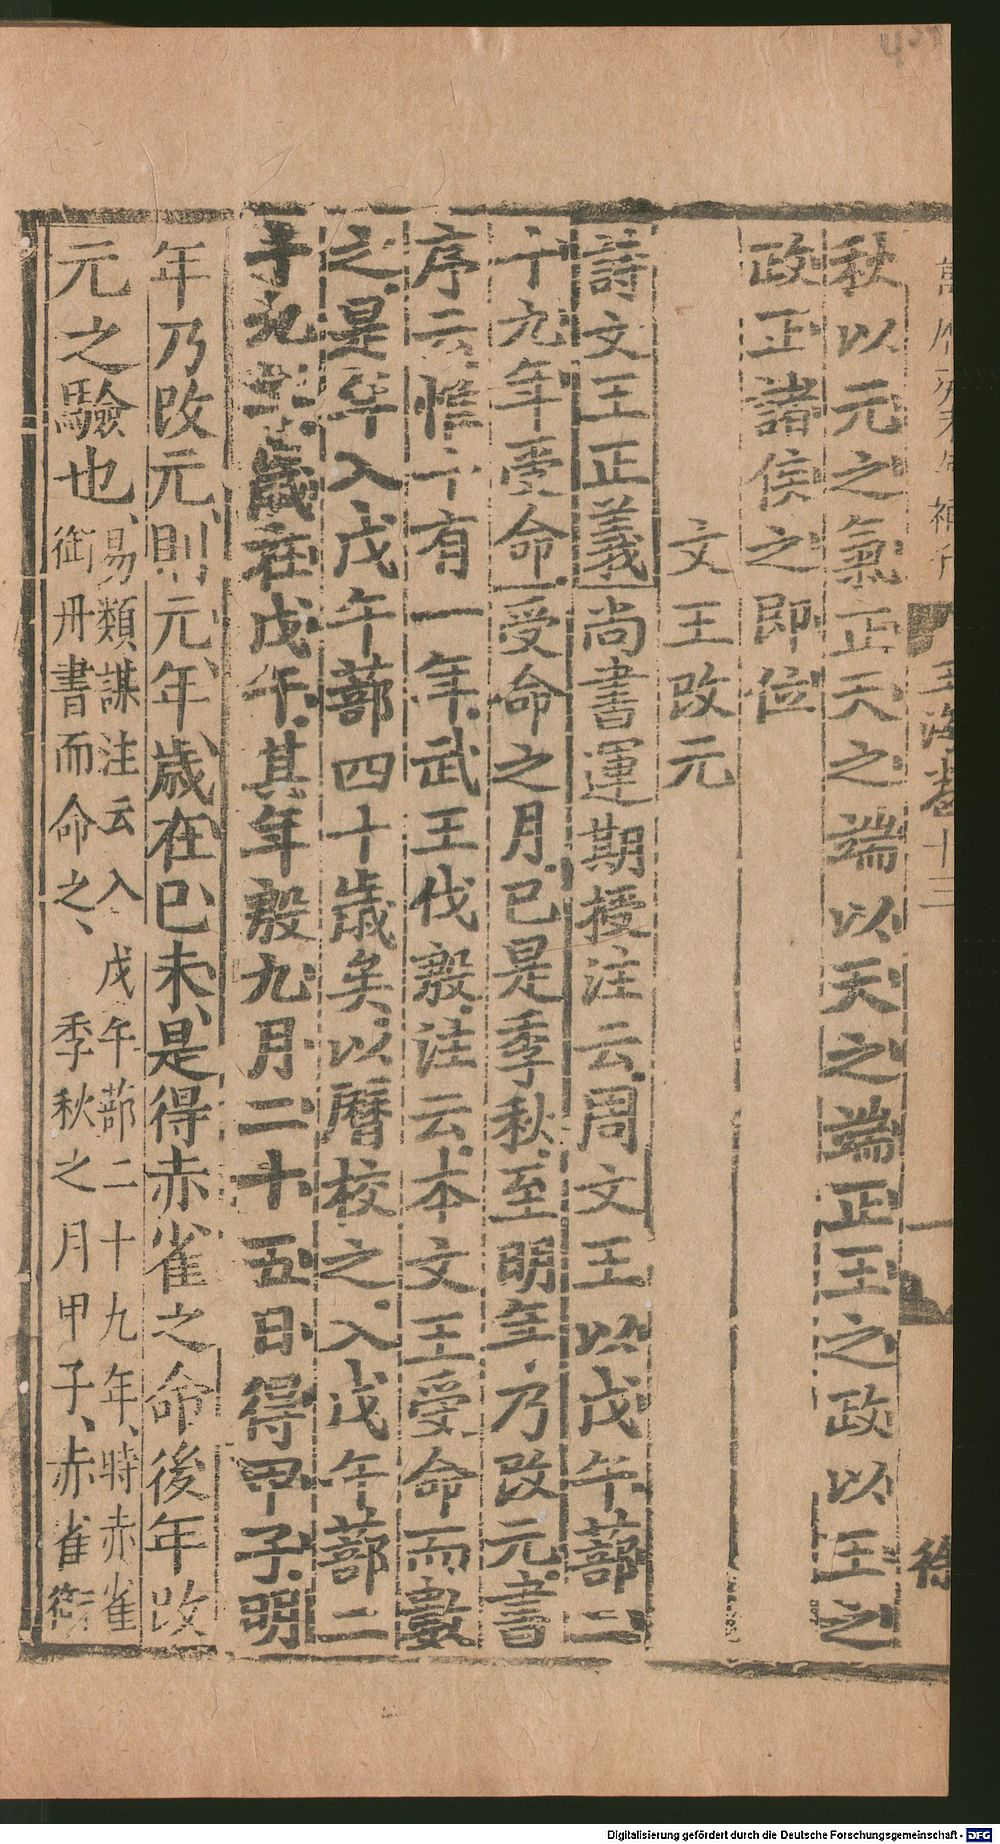 玉海卷十三
一
徐
秋以元之氣正天之端以天之端正王之政以王之
政正諸侯之即位
文王改元
詩文王正義尚書運期授注云周文王以戊午蔀二
十九年受命受命之月已是季秋至明年乃改元書
序云惟十有一年武王伐殷注云本文王受命而數
之是年入戊午蔀四十歲矣以曆校之入戊午蔀二
十九年歲在戊午其年殷九月二十五日得甲子明
年乃改元則元年歲在巳未是得赤雀之命後年改
元之驗也
易類謀注云入戊午蔀二十九年時赤雀
銜丹書而命之季秋之月甲子赤雀銜
Digitalisierung gefördert durch die Deutsche Forschungsgemeinschaft - DFG